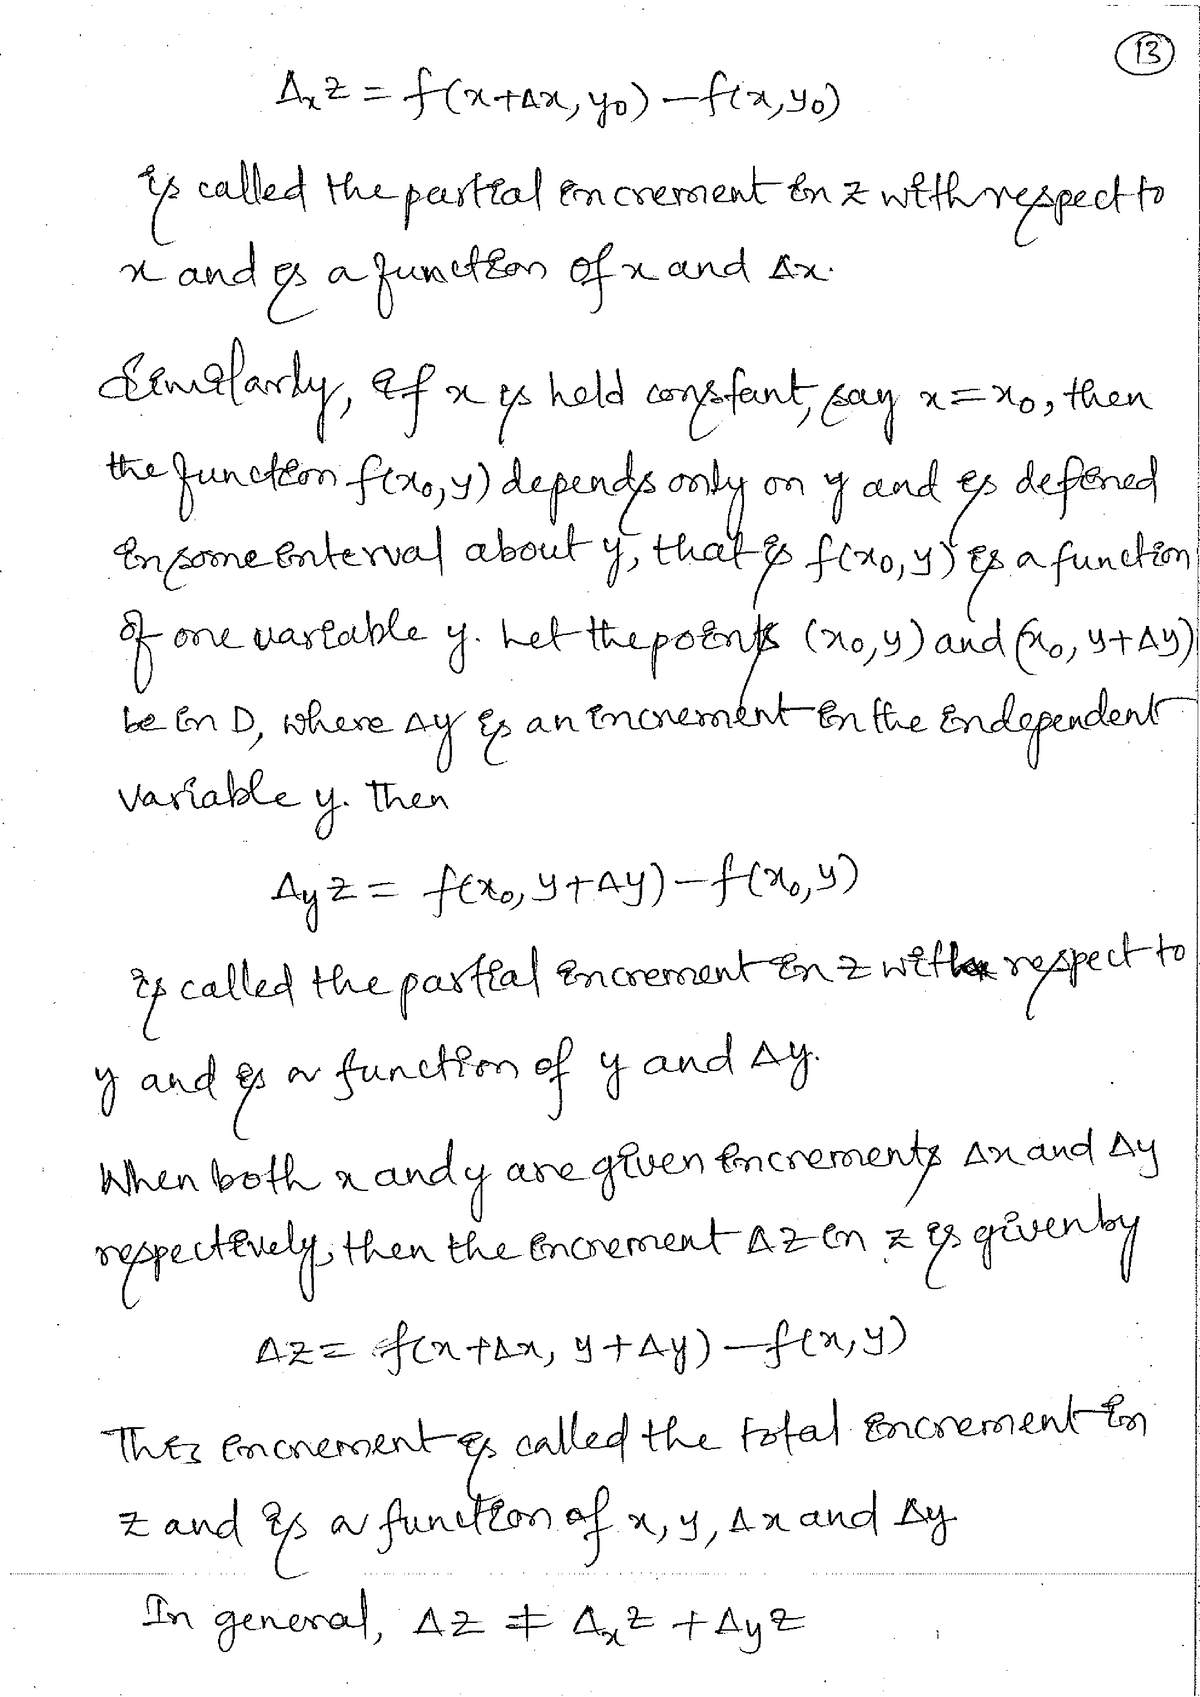 13
Δₓz = f(x+Δx, y₀) – f(x, y₀)
is called the partial increment in z with respect to
x and is a function of x and Δx.
Similarly, if x is held constant, say x = x₀, then
the function f(x₀, y) depends only on y and is defined
in some interval about y, that is f(x₀, y) is a function
of one variable y. Let the points (x₀, y) and (x₀, y+Δy)
be in D, where Δy is an increment in the independent
variable y. Then
Δᵧz = f(x₀, y+Δy) – f(x₀, y)
is called the partial increment in z with respect to
y and is a function of y and Δy.
When both x and y are given increments Δx and Δy
respectively, then the increment Δz in z is given by
Δz = f(x+Δx, y+Δy) – f(x, y)
This increment is called the total increment in
z and is a function of x, y, Δx and Δy
In general, Δz ≠ Δₓz + Δᵧz